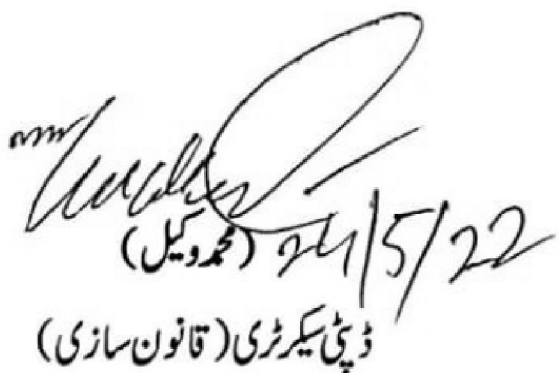 (محمد وکیل) 24/5/22
ڈپٹی سیکرٹری (قانون سازی)